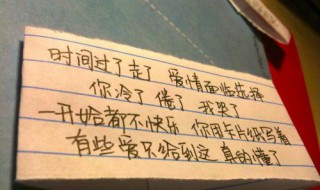 时间过了走了 爱情面临选择
你冷了 倦了 我哭了
一开始都不快乐 你用卡片纸写着
有些爱只给到这 真的懂了